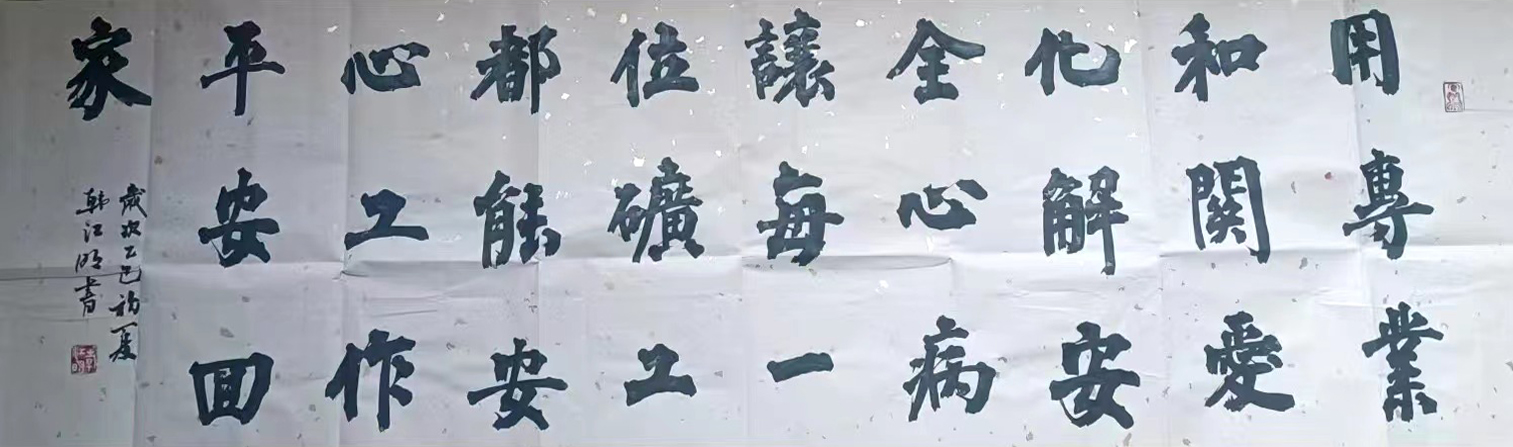 用專業
和關愛
化解安
全心病
讓每一
位礦工
都能安
心工作
平安回
家
歲次乙巳初夏
韩江明書